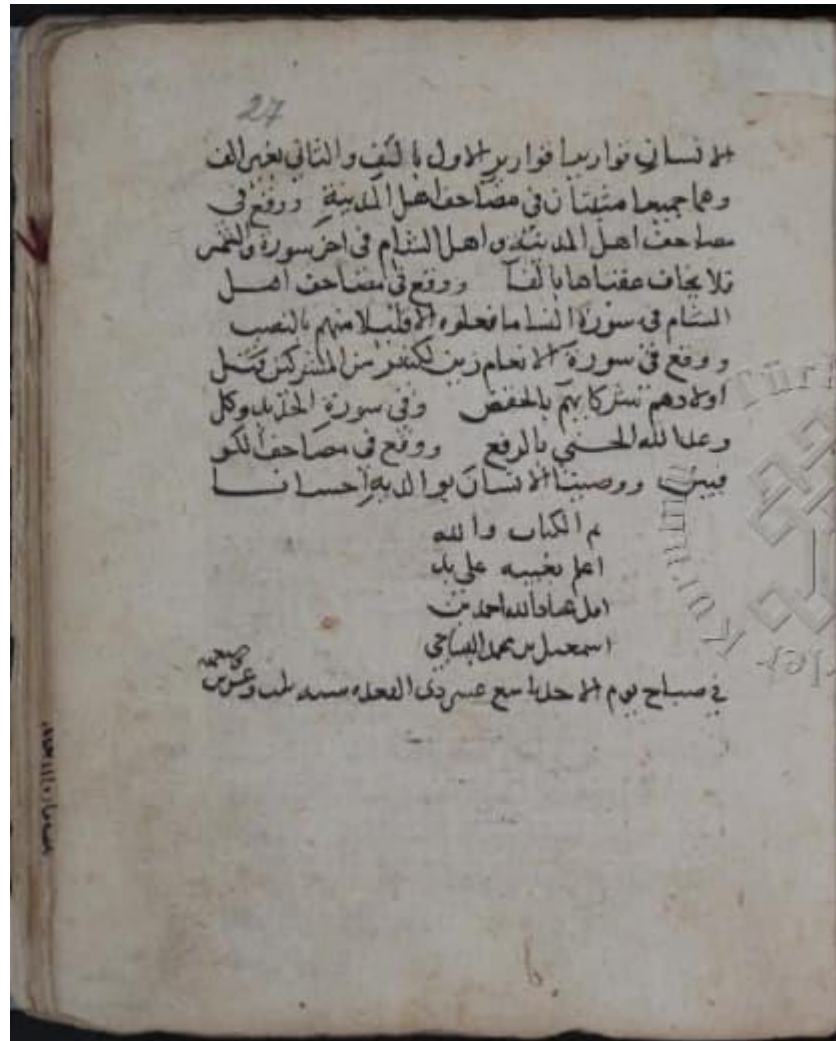 27
الانسان قواريرا قوارير الاول بالف والثاني بغير الف
وهما جميعا مثبتان في مصاحف اهل المدينة ووقع في
مصاحف اهل المدينة واهل الشام في اخر سورة والشمس
فلا يخاف عقباها بالفآ ووقع في مصاحف اهل
الشام في سورة النسا ما فعلوه الا قليلا منهم بالنصب
ووقع في سورة الانعام زين لكثير من المشركين قتل
اولادهم شركايهم بالخفض وفي سورة الحديد وكل
وعد الله الحسني بالرفع ووقع في مصاحف الكو
فيين ووصينا الانسان بوالديه احسانا
تم الكتاب والله
اعلم بغيبه على يد
اقل عباد الله احمد بن
اسمعيل بن محمد
في صباح يوم الاحد تاسع عشر ذي القعده سنه
Türk